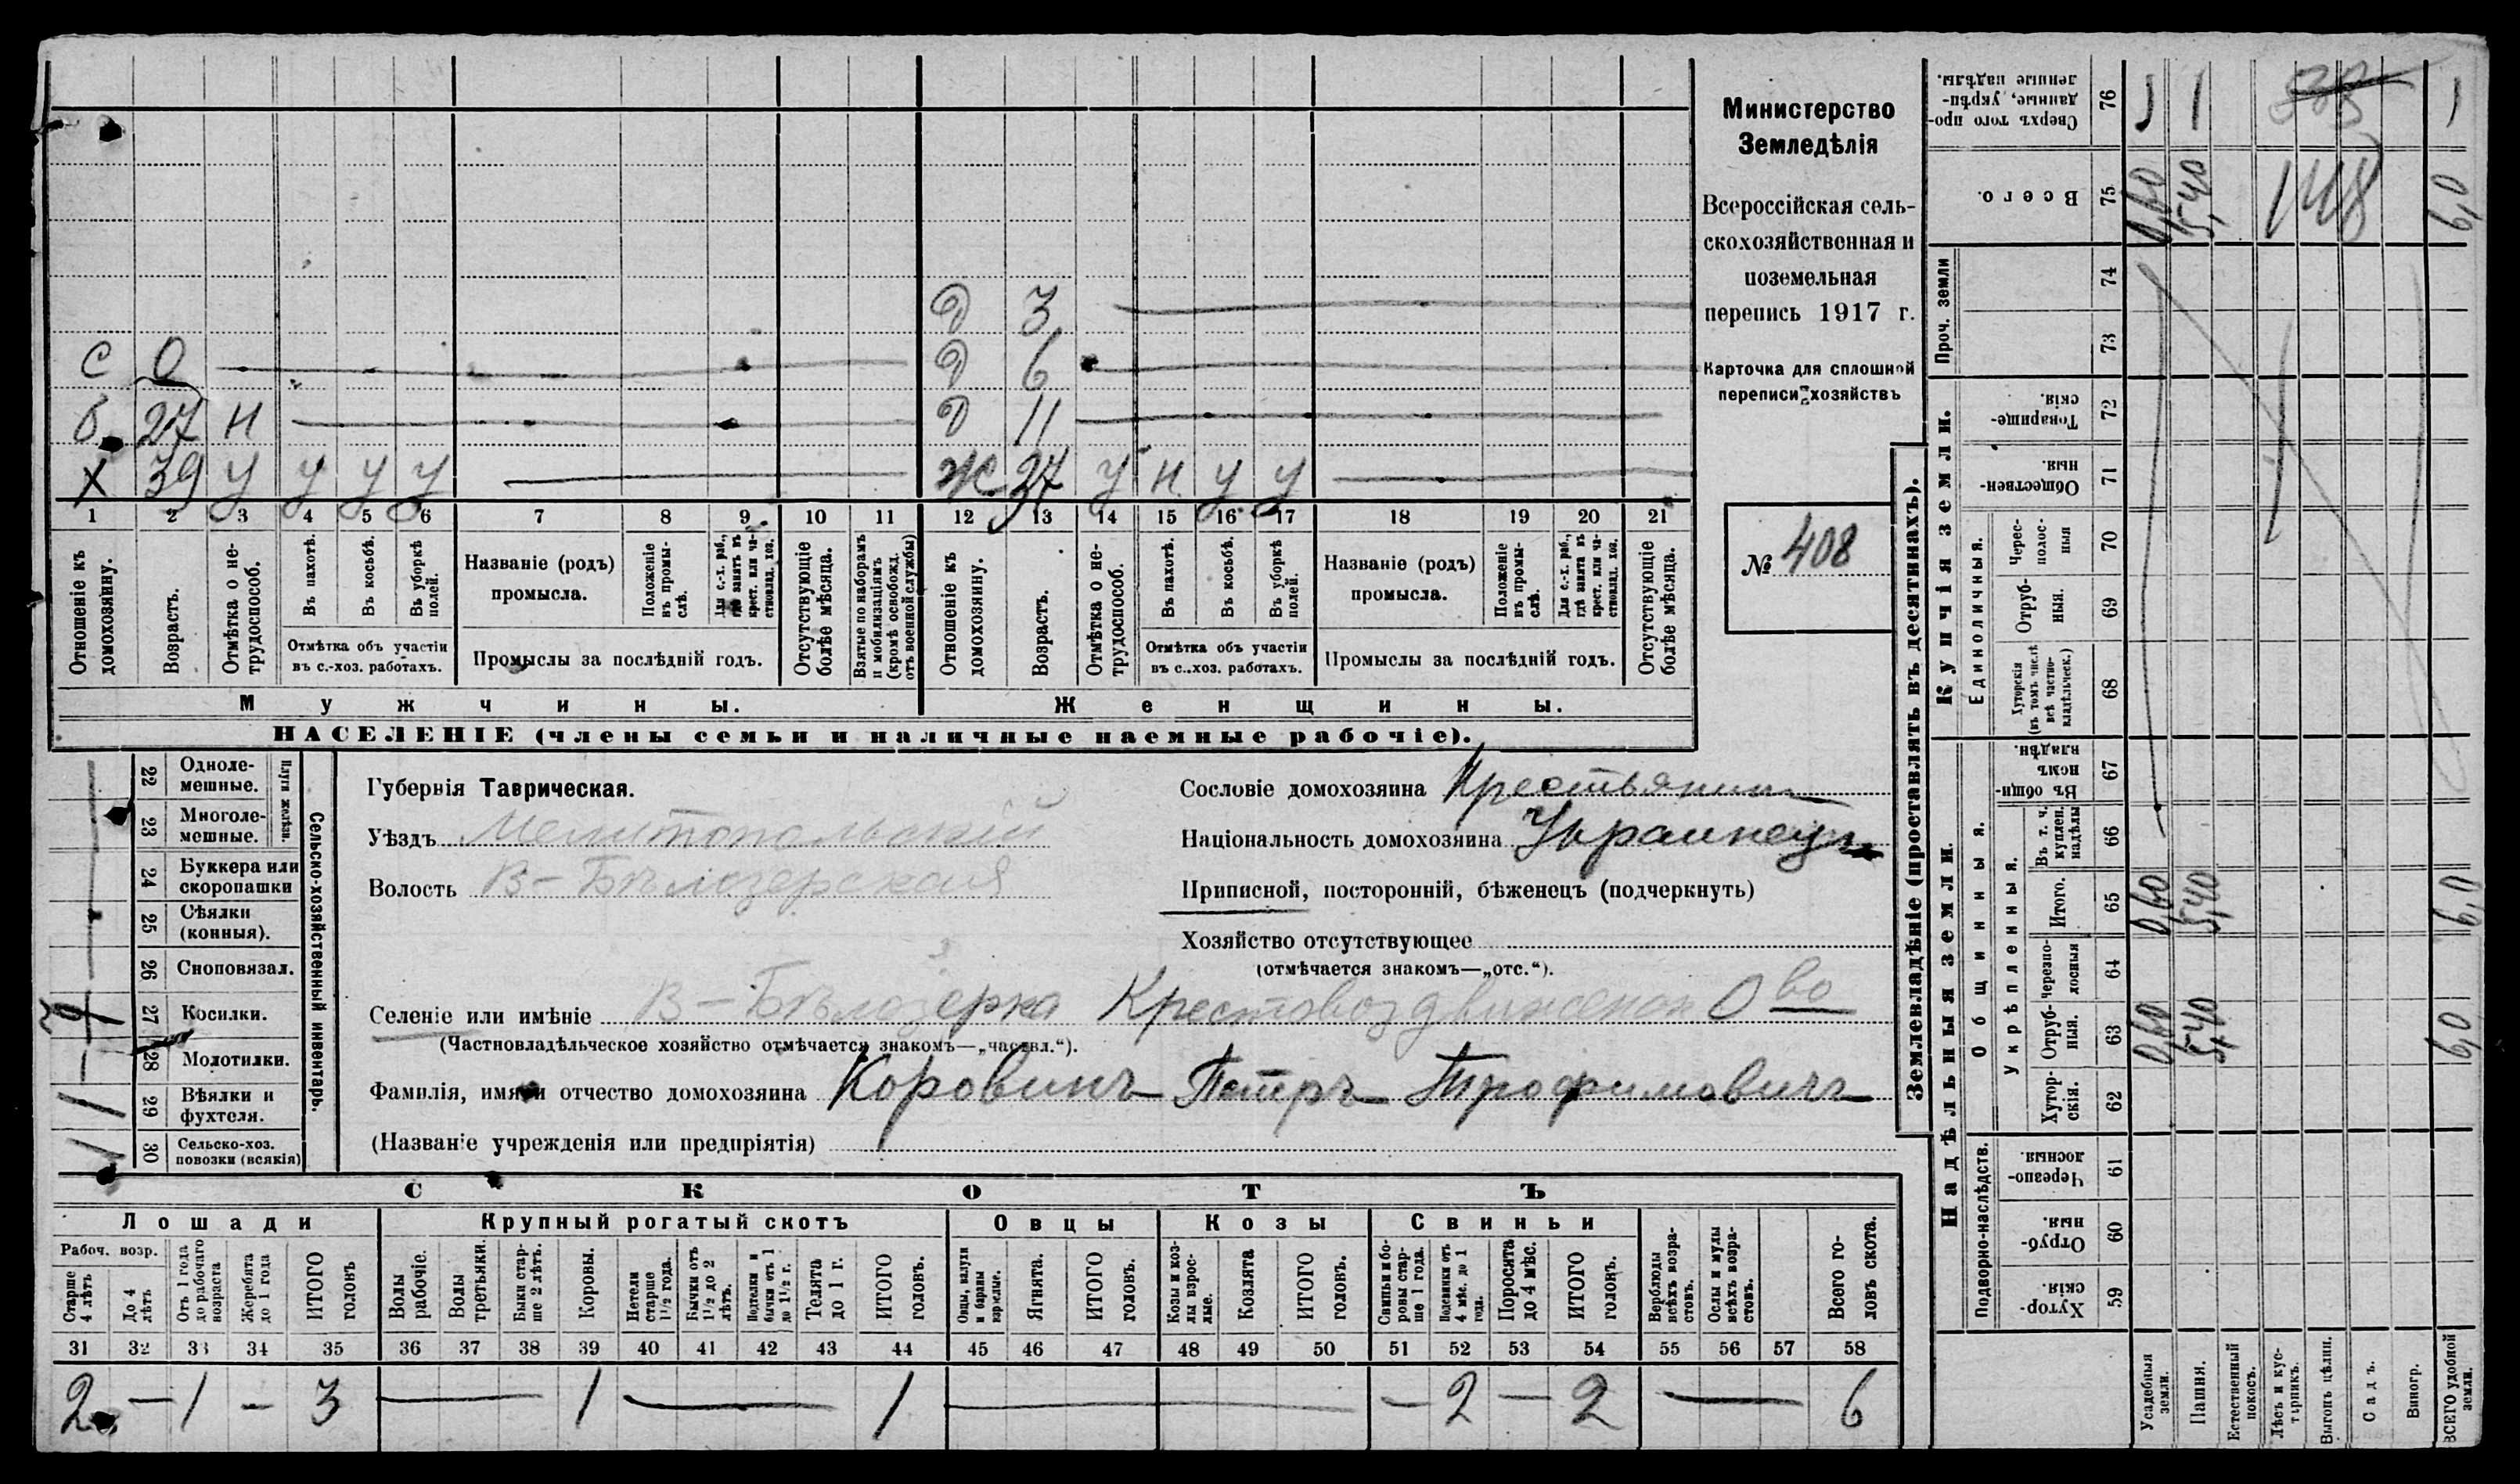 С О
б. 27 н
Х 39 у у у у
Д 3
Д 6
Д 11
Ж 37 у н у у
1 2 3 4 5 6 7 8 9 10 11 12 13 14 15 16 17 18 19 20 21
Отношеніе къ домохозяину.
Возрастъ.
Отмѣтка о не-
трудоспособ.
Въ пахотѣ.
Въ косьбѣ.
Въ уборкѣ
полей.
Отмѣтка объ участіи
въ с.-хоз. работахъ.
Названіе (родъ)
промысла.
Положеніе
въ промы-
слѣ.
Для с.-х. раб.,
гдѣ занятъ въ
крест. или ча-
ствовлад. хоз.
Промыслы за послѣдній годъ.
Отсутствующіе
болѣе мѣсяца.
Взятые по наборамъ
и мобилизаціямъ
(кромѣ освобожд.
отъ военной службы)
Отношеніе къ
домохозяину.
Возрастъ.
Отмѣтка о не-
трудоспособ.
Въ пахотѣ.
Въ косьбѣ.
Въ уборкѣ
полей.
Отмѣтка объ участіи
въ с..хоз. работахъ.
Названіе (родъ)
промысла.
Положеніе
въ промы-
слѣ.
Для с.-х. раб.,
гдѣ занята въ
крест. или ча-
ствовлад. хоз.
Промыслы за послѣдній годъ.
Отсутствующіе
болѣе мѣсяца.
Мужчины. Женщины.
НАСЕЛЕНІЕ (члены семьи и наличные наемные рабочіе).
Министерство
Земледѣлія
Всероссійская сель-
скохозяйственная и
поземельная
перепись 1917 г.
Карточка для сплошной
переписи хозяйствъ
№ 408
22 Одноле-
мешные.
23 Многоле-
мешные.
Плуги желѣзн.
24 Буккера или
скоропашки
25 Сѣялки
(конныя).
26 Сноповязал.
27 Косилки.
28 Молотилки.
29 Вѣялки и
фухтеля. 1
30 Сельско-хоз.
повозки (всякія) 1
Сельско-хозяйственный инвентарь.
Губернія Таврическая.
Уѣздъ Мелитопольскій
Волость В-Бѣлозерская
Сословіе домохозяина Крестьянин
Національность домохозяина Украинецъ
Приписной, посторонній, бѣженецъ (подчеркнуть)
Хозяйство отсутствующее
(отмѣчается знакомъ—„отс.“).
Селеніе или имѣніе В-Бѣлозерка Крестовоздвиженск О во
(Частновладѣльческое хозяйство отмѣчается знакомъ—„частвл.“).
Фамилія, имя и отчество домохозяина Коровинъ Петръ Трофимовичъ
(Названіе учрежденія или предпріятія)
СКОТЪ
Лошади Крупный рогатый скотъ Овцы Козы Свиньи
Рабоч. возр.
Старше
4 лѣтъ
До 4
лѣтъ
Отъ 1 года
до рабочаго
возраста
Жеребята
до 1 года
ИТОГО
головъ
Волы
рабочіе.
Волы
третьяки.
Быки стар-
ше 2 лѣтъ.
Коровы.
Нетели
старше
1½ года.
Бычки отъ
1½ до 2
лѣтъ.
Подтелки и
бычки отъ 1
до 1½ г.
Телята
до 1 г.
ИТОГО
головъ.
Овцы, валухи
и бараны
взрослые.
Ягнята.
ИТОГО
головъ.
Козы и коз-
лы взрос-
лые.
Козлята
ИТОГО
головъ.
Свиньи и бо-
ровы стар-
ше 1 года.
Подсвинки отъ
4 мѣс. до 1
года.
Поросята
до 4 мѣс.
ИТОГО
головъ.
Верблюды
всѣхъ возра-
стовъ.
Ослы и мулы
всѣхъ возра-
стовъ.
Всего го-
ловъ скота.
31 32 33 34 35 36 37 38 39 40 41 42 43 44 45 46 47 48 49 50 51 52 53 54 55 56 57 58
2 — 1 — 3 — 1 — 1 — — 2 — 2 — 6
Землевладѣніе (проставлять въ десятинахъ).
Купчія земли.
Надѣльныя земли.
Сверхъ того про-
данные, укрѣп-
ленные надѣлы. 76
Всего. 75 0,60 5,40 148 6,0
Проч. земли 74 73
Товарище-
скія. 72
Обществен-
ныя. 71
Единоличныя.
Черес-
полос-
ныя 70
Отруб-
ныя. 69
Хуторскія
(въ томъ числѣ
всѣ частно-
владѣльческ.) 68
Общинныя.
Въ общи-
номъ
владѣн. 67
Укрѣпленныя.
Въ т. ч.
куплен.
надѣлы 66
Итого. 65 0,60 5,40 6,0
Черезпо-
лосныя 64
Отруб-
ныя. 63 0,60 5,40 6,0
Хутор-
скія. 62
Подворно-наслѣдств.
Черезпо-
лосныя. 61
Отруб-
ныя. 60
Хутор-
скія. 59
Усадебныя
земли.
Пашня.
Естественный
покосъ.
Лѣсъ и кус-
тарникъ.
Выгонъ цѣлин.
Садъ.
Виногр.
ВСЕГО удобной
земли.